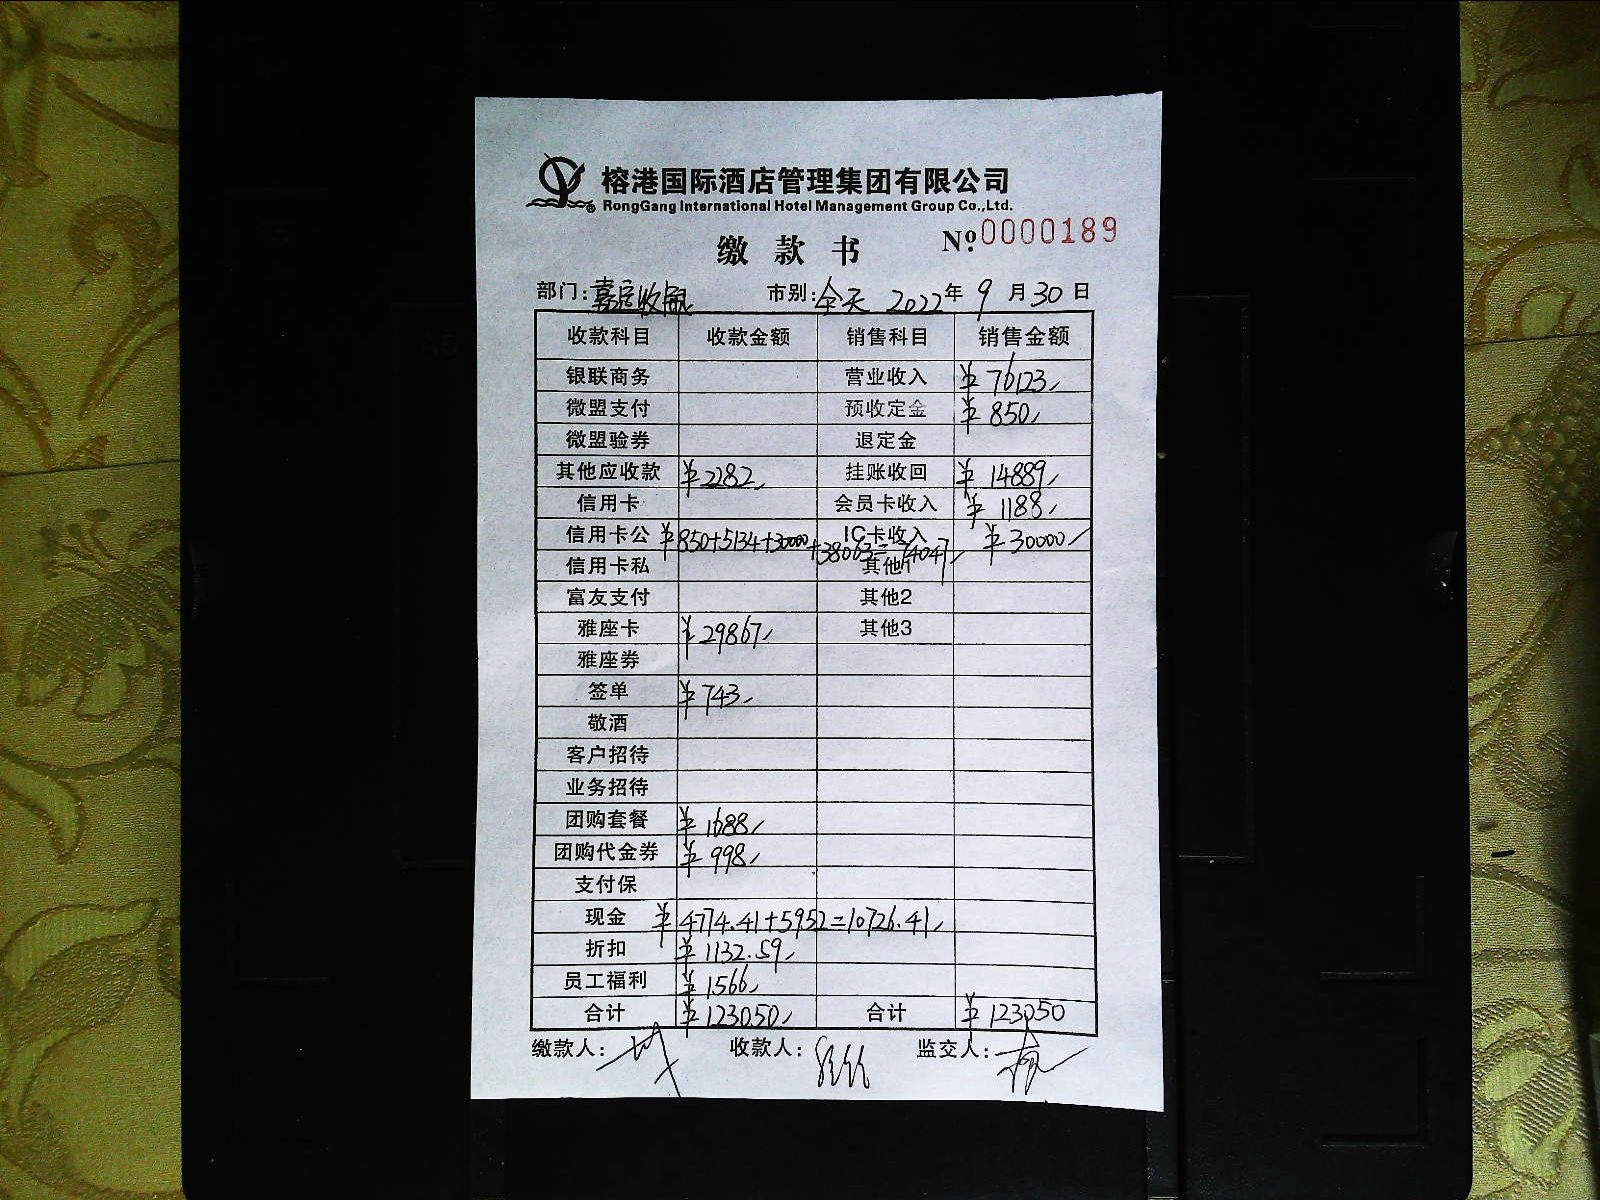 榕港国际酒店管理集团有限公司
RongGang International Hotel Management Group Co.,Ltd.
缴款书 №0000189
部门: 市别:全天 2022年9月30日
收款科目 收款金额 销售科目 销售金额
银联商务 营业收入 ¥76123
微盟支付 预收定金 ¥850
微盟验券 退定金
其他应收款 ¥2282 挂账收回 ¥14889
信用卡 会员卡收入 ¥1188
信用卡公 ¥850+5134+30000+38063=74047 IC卡收入 ¥30000
信用卡私 其他1
富友支付 其他2
雅座卡 ¥29867 其他3
雅座券
签单 ¥743
敬酒
客户招待
业务招待
团购套餐 ¥1688
团购代金券 ¥998
支付保
现金 ¥4774.41+5952=10726.41
折扣 ¥1132.59
员工福利 ¥1566
合计 ¥123050 合计 ¥123050
缴款人: 收款人: 监交人: